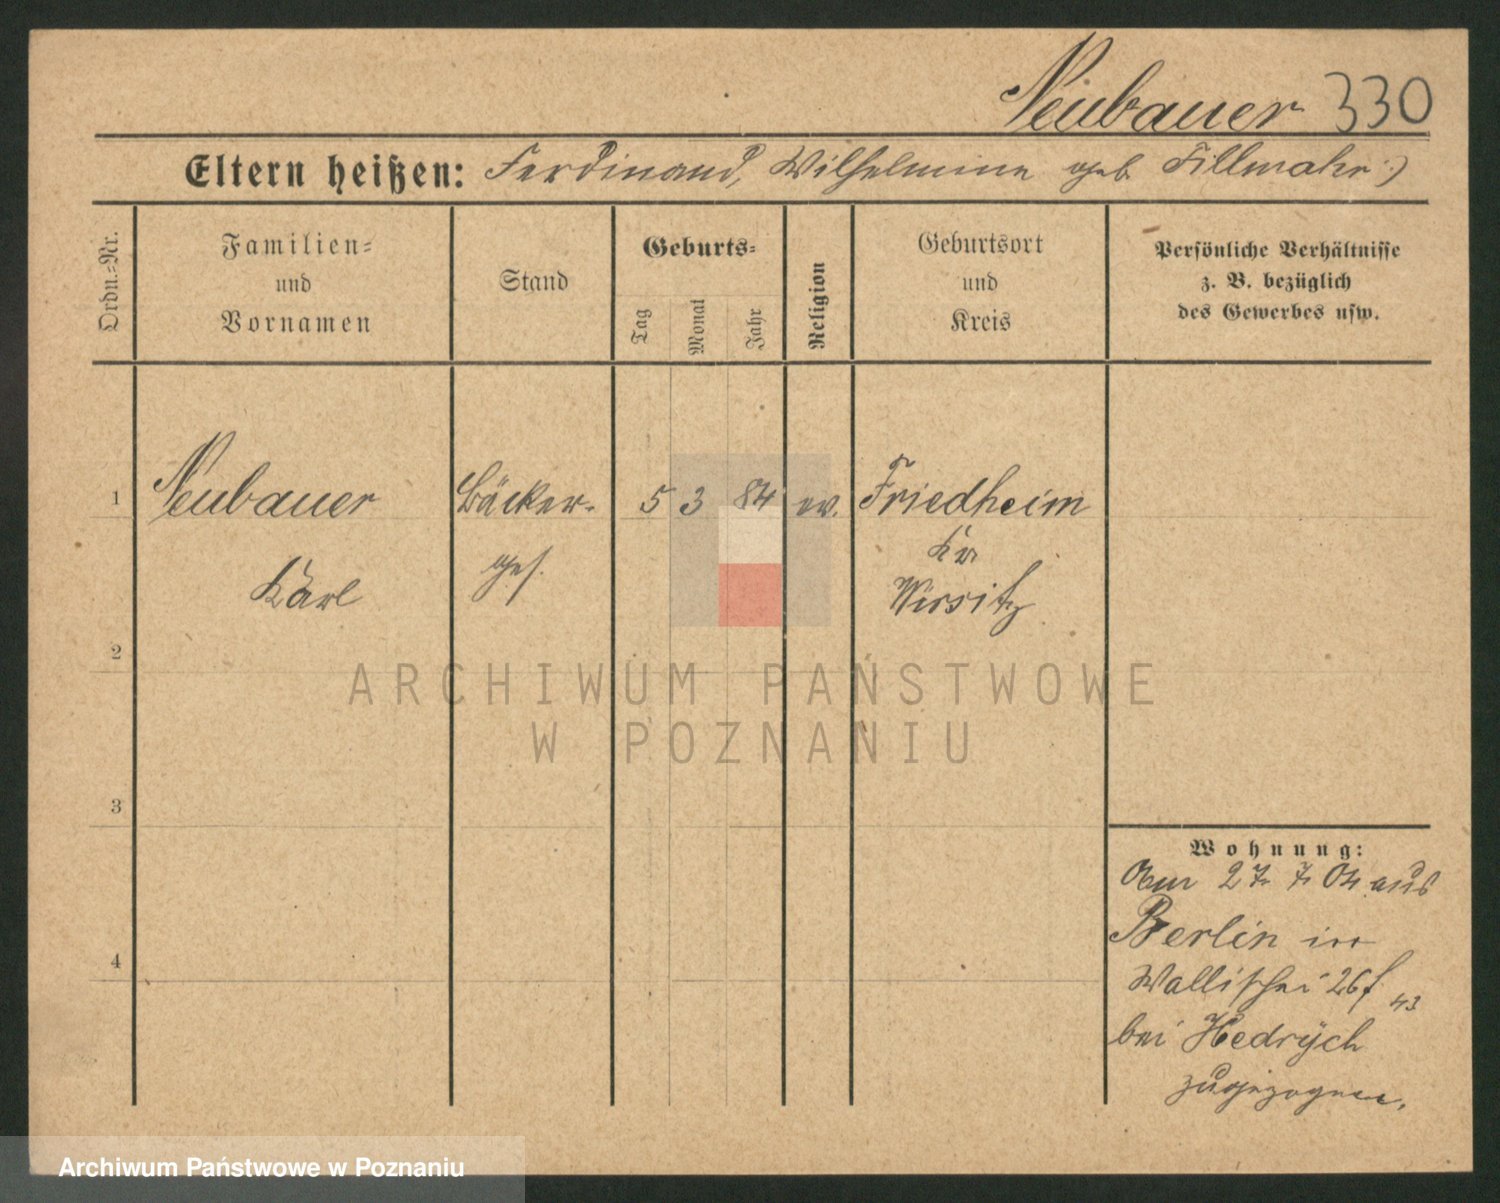 Neubauer 330
Eltern heißen: Ferdinand, Wilhelmine geb. Tillmahn :)
Ordn.=Nr.
Familien=
und
Vornamen
Stand
Geburts=
Tag
Monat
Jahr
Religion
Geburtsort
und
Kreis
Persönliche Verhältnisse
z. B. bezüglich
des Gewerbes usw.
1 Neubauer Bäcker- 5 3 84 ev. Friedheim
Karl ges. Kr
Wirsitz
2
3
4
Wohnung:
Am 27. 7. 04 aus
Berlin in
Wallischei 26
43
bei Hedrÿch
zugezogen.
ARCHIWUM PAŃSTWOWE
W POZNANIU
Archiwum Państwowe w Poznaniu